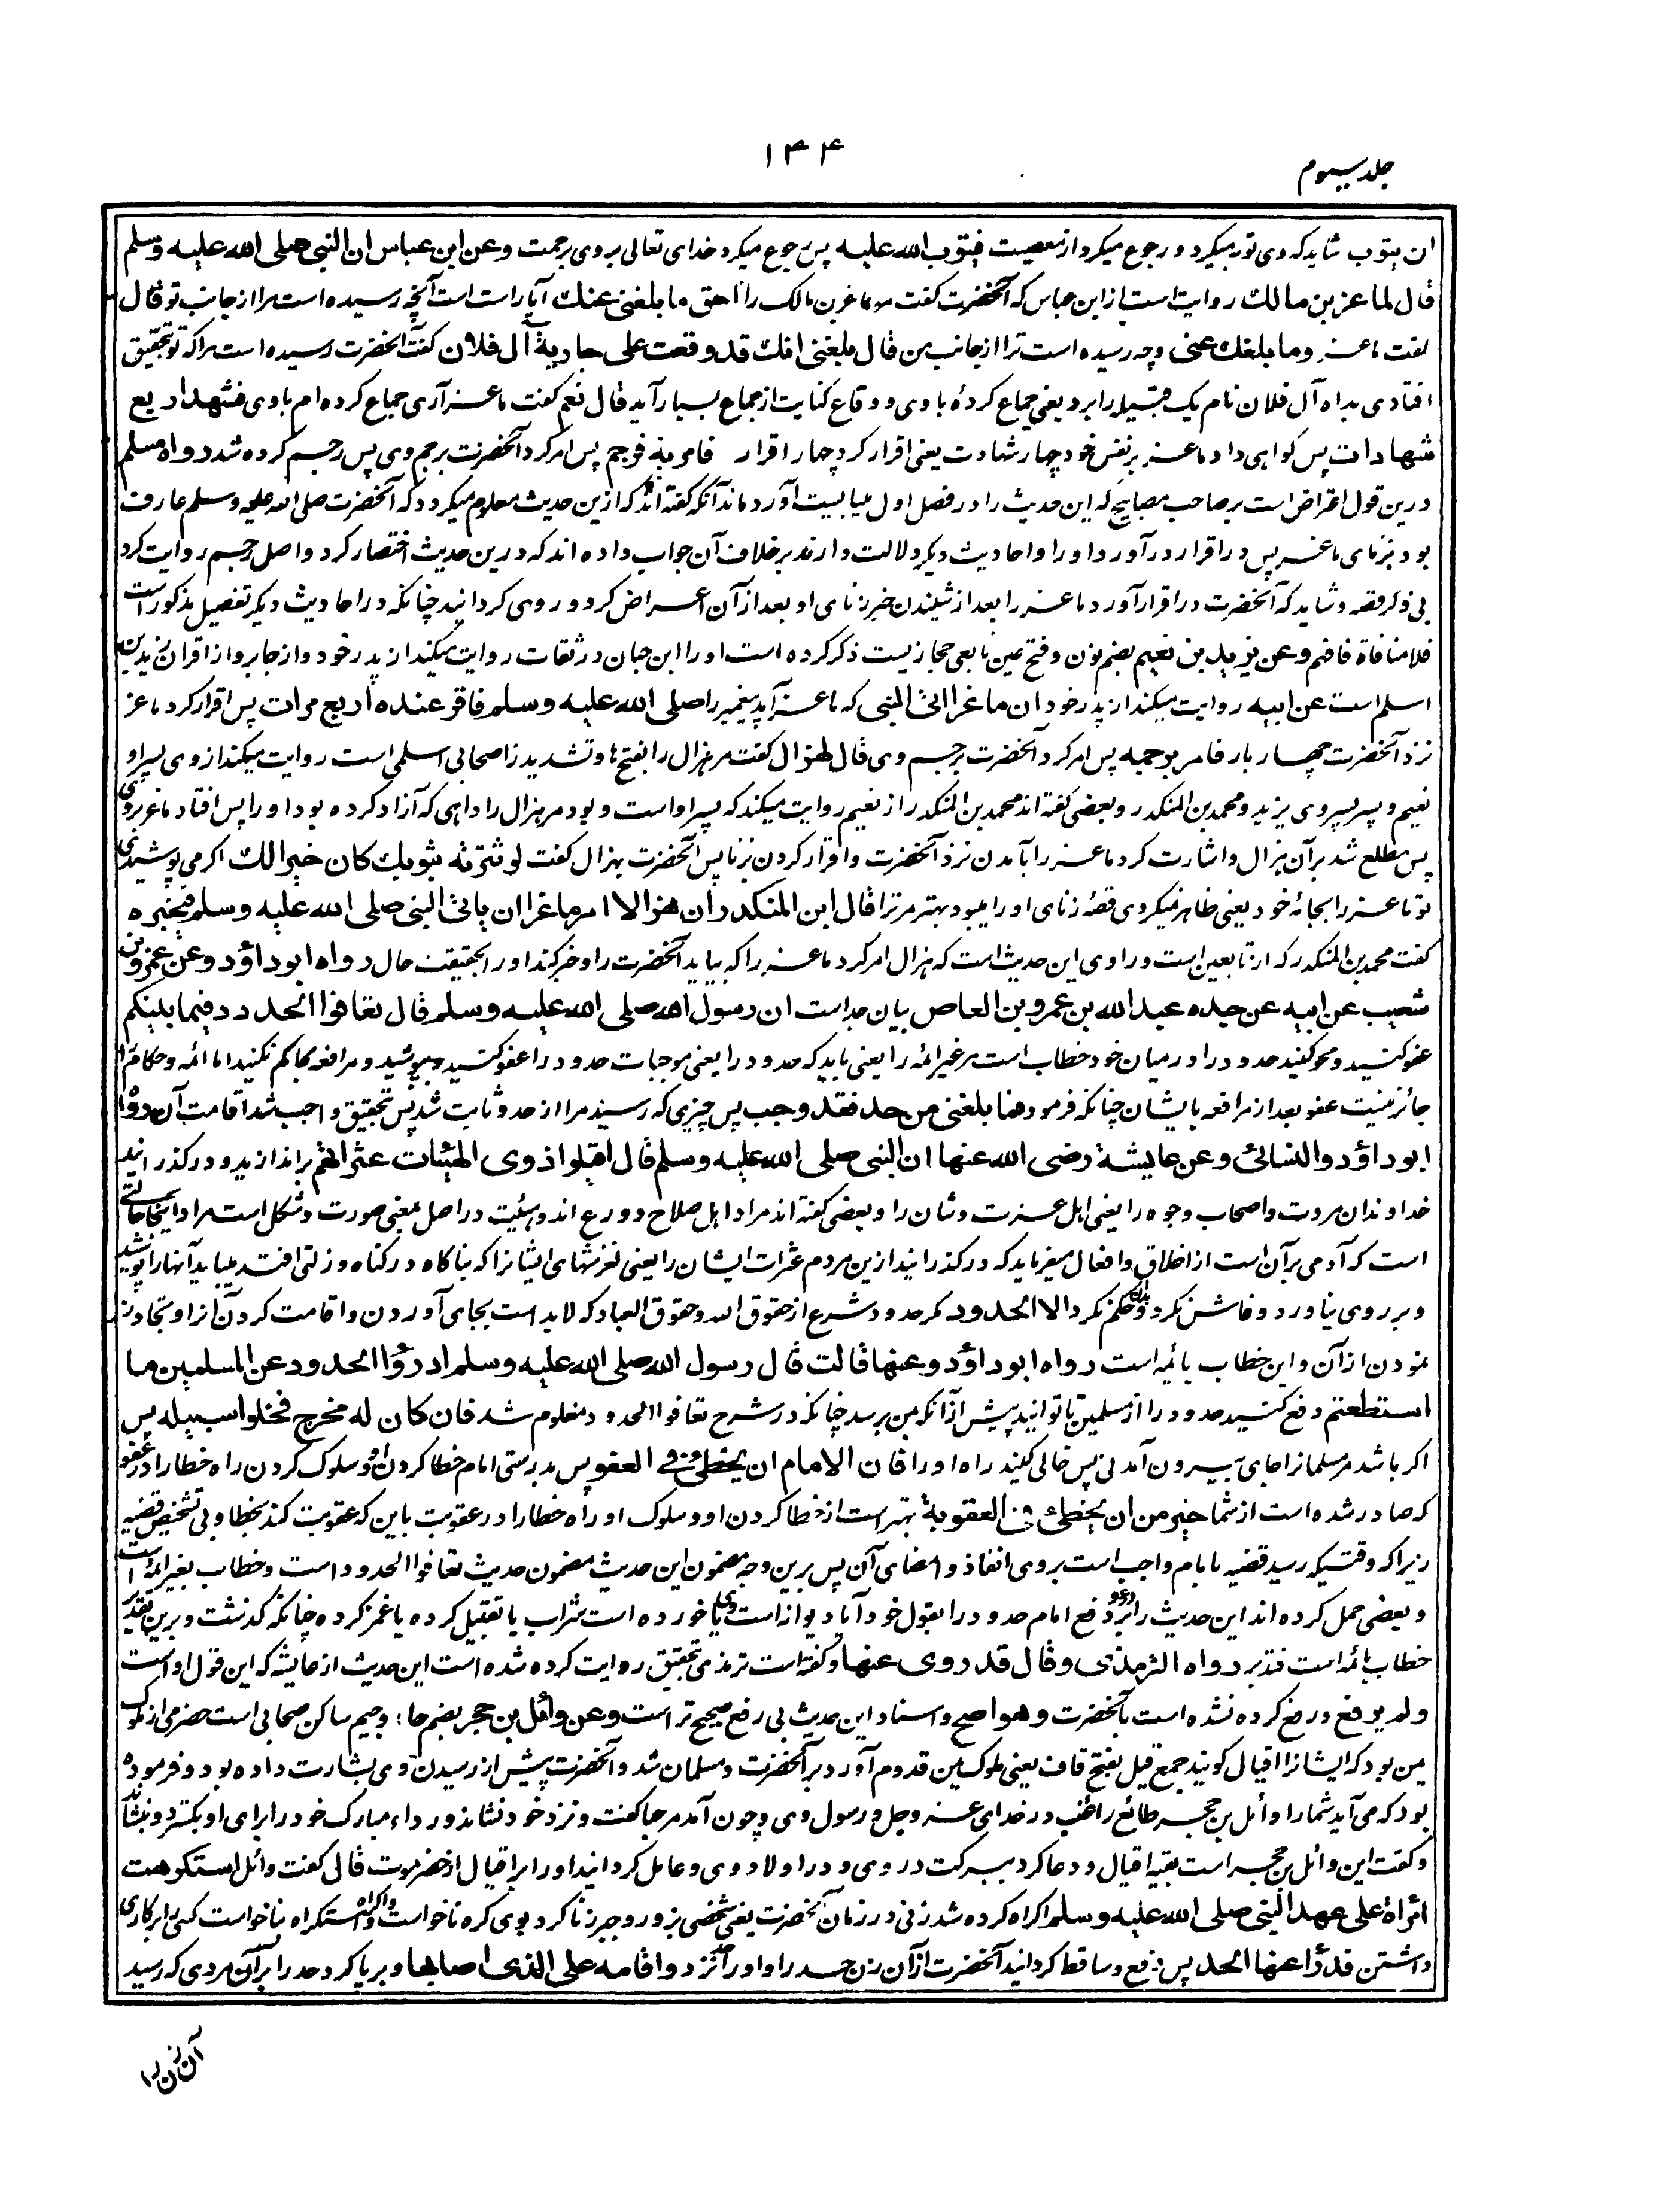 ۱۳۴
جلد سیوم
ان یتوب شاید که وی توبه میکرد و رجوع میکرد از معصیت فیتوب الله علیه پس رجوع میکرد خدای تعالی بر وی برحمت وعن ابن عباس ان النبی صلی الله علیه وسلم
قال لماعز بن مالك روایت است از ابن عباس که آنحضرت گفت مر ماعز بن مالک را احق ما بلغنی عنك آیا راست است آنچه رسیده است مرا از جانب تو قال
گفت ماعز وما بلغك عنی وچه رسیده است ترا از جانب من قال بلغنی انك قد وقعت علی جاریة آل فلان گفت آنحضرت رسیده است مرا که تو بتحقیق
افتادی بداه آل فلان نام یک قبیله را برد یعنی جماع کردهٔ با وی و وقاع کنایت از جماع بسیار آید قال نعم گفت ماعز آری جماع کرده ام با وی فشهد اربع
شهادات پس گواهی داد ماعز بر نفس خود چهار شهادت یعنی اقرار کرد چهار اقرار فامر به فرجم پس امر کرد آنحضرت برجم وی پس رجم کرده شد رواه مسلم
درین قول اعتراض است بر صاحب مصابیح که این حدیث را در فصل اول میبایست آورد ماند آنکه گفته اند که ازین حدیث معلوم میگردد که آنحضرت صلی الله علیه وسلم عارف
بود بزنای ماعز پس در اقرار در آورد او را واحادیث دیگر دلالت دارند بر خلاف آن جواب داده اند که درین حدیث اختصار کرد واصل رجم روایت کرد
بی ذکر قصه وشاید که آنحضرت در اقرار آورد ماعز را بعد از شنیدن خبر زنای او بعد از آن اعراض کرد و روی گردانید چنانکه در احادیث دیگر تفصیل مذکور است
فلا منافاة فافهم وعن یزید بن نعیم بضم نون وفتح عین تابعی حجازیست ذکر کرده است او را ابن حبان در ثقات روایت میکند از پدر خود و از جابر و از اقران زید بن
اسلم است عن ابیه روایت میکند از پدر خود ان ماعزا اتی النبی که ماعز آید پیغمبر را صلی الله علیه وسلم فاقر عنده اربع مرات پس اقرار کرد ماعز
نزد آنحضرت چهار بار فامر برجمه پس امر کرد آنحضرت برجم وی قال لهزال گفت مر هزال را بفتح ها وتشدید زا صحابی اسلمی است روایت میکند از وی پسر او
نعیم و پسر پسر وی یزید ومحمد بن المنکدر و بعضی گفته اند محمد بن المنکدر از نعیم روایت میکند که پسر او است و بود مر هزال را داهی که آزاد کرده بود او را پس افتاد ماعز بروی
پس مطلع شد بر آن هزال واشارت کرد ماعز را بآمدن نزد آنحضرت واقرار کردن بزنا پس آنحضرت بهزال گفت لو سترته بثوبك کان خیرا لك اگر می پوشیدی
تو ماعز را بجامهٔ خود یعنی ظاهر نمیکردی قصهٔ زنای او را میبود بهتر مر ترا قال ابن المنکدر ان هزالا امر ماعزا ان یاتی النبی صلی الله علیه وسلم فیخبره
گفت محمد بن المنکدر که از تابعین است وراوی این حدیث است که هزال امر کرد ماعز را که بیاید آنحضرت را وخبر کند او را بحقیقت حال رواه ابو داؤد وعن عمرو بن
شعیب عن ابیه عن جده عبد الله بن عمرو بن العاص بیان جد است ان رسول الله صلی الله علیه وسلم قال تعافوا الحدود فیما بینکم
عفو کنید ومحو کنید حدود را در میان خود خطاب است مر غیر ائمه را یعنی باید که حدود را یعنی موجبات حدود را عفو کنید وبپوشید و مرافعه بحاکم نکنید اما ائمه وحکام را
جائز نیست عفو بعد از مرافعه بایشان چنانکه فرمود فما بلغنی من حد فقد وجب پس چیزی که رسید مرا از حد وثابت شد پس بتحقیق واجب شد اقامت آن رواه
ابو داؤد والنسائی وعن عایشة رضی الله عنها ان النبی صلی الله علیه وسلم قال اقیلوا ذوی الهیئات عثراتهم براندازید و درگذرانید
خداوندان مروت واصحاب وجوه را یعنی اهل عزت وشان را و بعضی گفته اند مراد اهل صلاح و ورع اند وهیئت در اصل بمعنی صورت وشکل است مراد اینجا حالتی
است که آدمی بر آن است از اخلاق وافعال میفرماید که درگذرانید ازین مردم عثرات ایشان را یعنی لغزشهای ایشانرا که بناگاه در گناه وزلتی افتند میباید آنها را پوشید
وبر روی نیاورد وفاش نکرد وحکم نکرد الا الحدود مگر حدود شرع از حقوق الله وحقوق العباد که لابد است بجای آوردن واقامت کردن آنرا وتجاوز
نمودن از آن و این خطاب بائمه است رواه ابو داؤد وعنها قالت قال رسول الله صلی الله علیه وسلم ادرؤا الحدود عن المسلمین ما
استطعتم دفع کنید حدود را از مسلمین تا توانید پیش از آنکه بمن برسد چنانکه در شرح تعافوا الحدود معلوم شد فان کان له مخرج فخلوا سبیله پس
اگر باشد مر مسلمانرا جای بیرون آمدنی پس خالی کنید راه او را فان الامام ان یخطئ فی العفو پس بدرستی امام خطا کردن او وسلوک کردن راه خطا را در عفو
که صادر شده است از شما خیر من ان یخطئ فی العقوبة بهتر است از خطا کردن او وسلوک او راه خطا را در عقوبت باین که عقوبت کند بخطا وبی تشخیص قضیه
زیرا که وقتیکه رسید قضیه با امام واجب است بروی انفاذ وامضای آن پس برین وجه مضمون این حدیث مضمون حدیث تعافوا الحدود است وخطاب بغیر ائمه است
و بعضی حمل کرده اند این حدیث را بر دفع امام حدود را بقول خود آیا دیوانه است وی یا خورده است شراب یا تقبیل کرده یا غمز کرده چنانکه گذشت وبرین تقدیر
خطاب بائمه است فتدبر رواه الترمذی وقال قد روی عنها وگفته است ترمذی بتحقیق روایت کرده شده است این حدیث از عایشه که این قول او است
ولم یرفع ورفع کرده نشده است بآنحضرت وهو اصح واسناد این حدیث بی رفع صحیح تر است وعن وائل بن حجر بضم حاء وجیم ساکن صحابی است حضرمی از ملوک
یمن بود که ایشانرا اقیال گویند جمع قیل بفتح قاف یعنی ملوک یمن قدوم آورد بر آنحضرت ومسلمان شد وآنحضرت پیش از رسیدن وی بشارت داده بود وفرموده
بود که می آید شما را وائل بن حجر طائع راغب در خدای عز وجل و رسول وی وچون آمد مرحبا گفت ونزد خود نشاند و رداء مبارک خود را برای او بگسترد وبنشاند
وگفت این وائل بن حجر است بقیه اقیال ودعا کرد ببرکت در وی و در اولاد وی وعامل گردانید او را بر اقیال از حضرموت قال گفت وائل استکرهت
امرأة علی عهد النبی صلی الله علیه وسلم اکراه کرده شد زنی در زمان آنحضرت یعنی شخصی بزور وجبر زنا کرد بوی کره ناخواست واکراه واستکراه بناخواست کسی را بر کاری
داشتن فدرأ عنها الحد پس دفع وساقط گردانید آنحضرت از آن زن حد را و او را حد نزد واقامه علی الذی اصابها وبرپا کرد حد را بر آن مردی که رسید
آن زن را